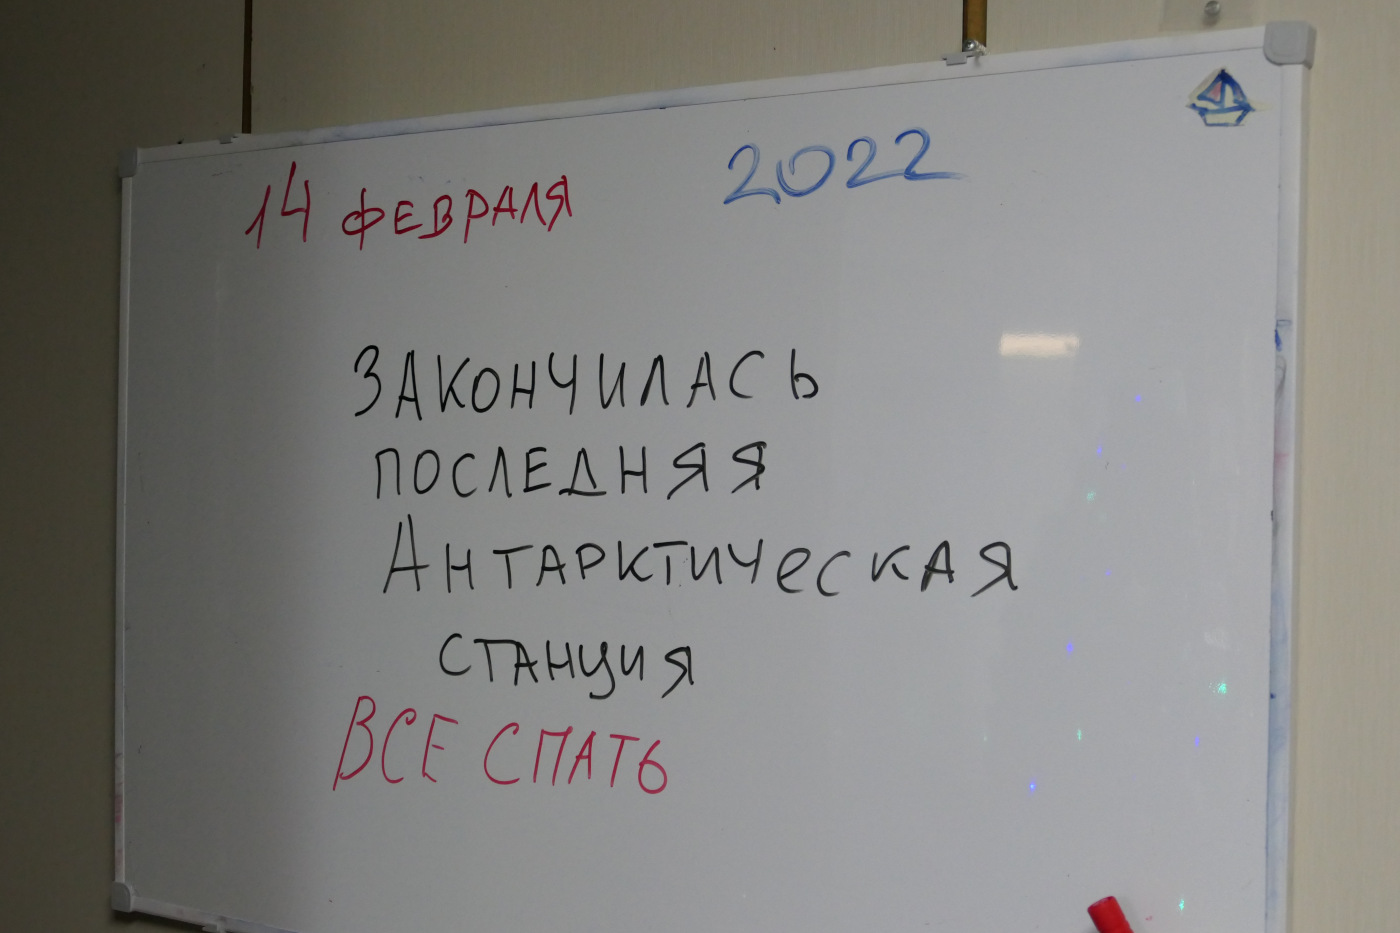 14 ФЕВРАЛЯ 2022
ЗАКОНЧИЛАСЬ
ПОСЛЕДНЯЯ
АНТАРКТИЧЕСКАЯ
СТАНЦИЯ
ВСЕ СПАТЬ